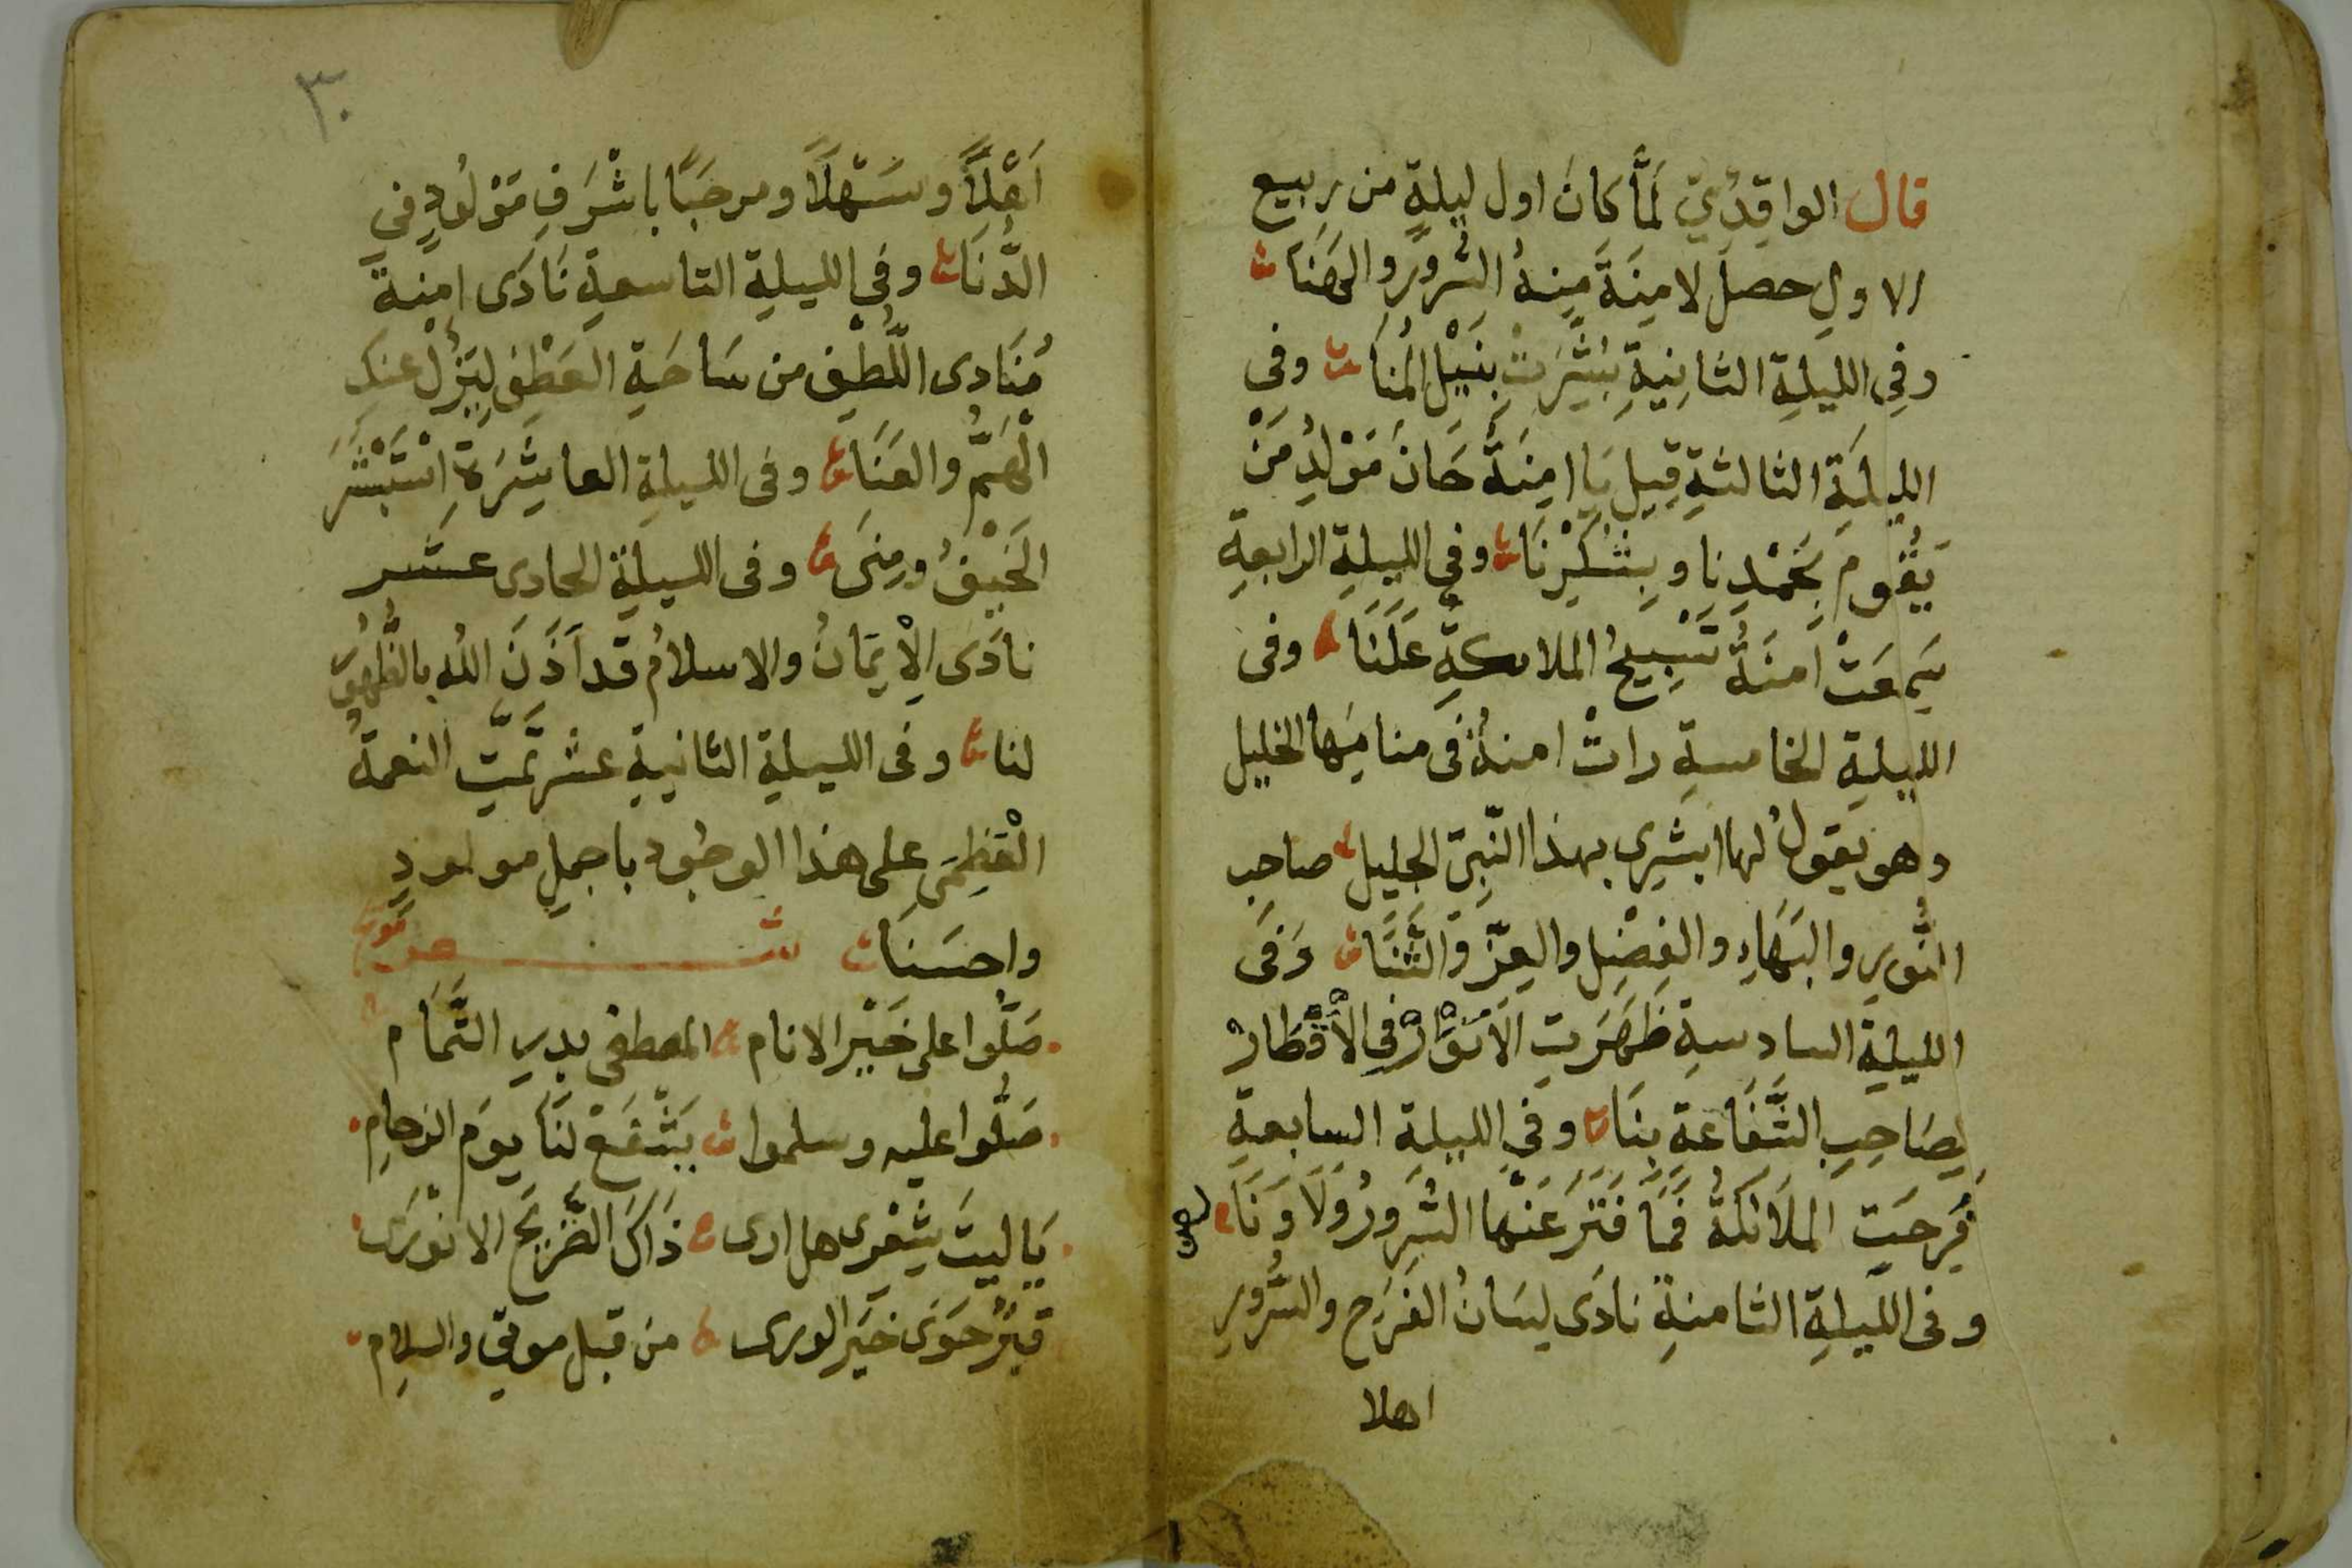 قال الواقِدِيّ لَمَّا كانَ اول ليلةٍ من ربيع
الاولِ حصل لامِنَةَ مِنهُ السُّرورُ والهَنَا
وفِى الليلةِ الثانِيَةِ بُشِّرَتْ بِنَيْلِ المُنَا وفى
الليلَةِ الثالثةِ قِيلَ يَا امِنَةُ حَانَ مَوْلِدُ مَنْ
يَقُومُ بِحَمْدِنا وبِشُكْرِنَا وفى الليلةِ الرابعةِ
سَمِعَتْ اَمنَةُ تَسْبِيحُ الملائكةِ عَلَنَا وفى
الليلةِ الخامسةِ راتْ امنةُ فى منامِها الخليل
وهو يقولُ لها ابشِرِى بهذا النَّبِىّ الجليل صاحِب
النُّورِ والبَهَاءِ والفضْلِ والعِزّ والثَّنَا وَفى
الليلةِ السادسةِ ظَهَرَتِ الاَنوَارُ فى الاَقْطَارْ
لِصَاحِبِ الشَّفَاعَةِ بِنَا وفى الليلة السابعةِ
فُرِحَتِ الملَائكةُ فَمَا فَتَرَ عَنْها السُّرورُ وَلَا وَنَا
وفى اللّيلةِ الثامنةِ نادَى لِسَانُ الفَرَحِ والسُّرورِ
اهلا
٣٠
اَهْلاً وسَهْلاً ومرحَبًا باشْرَفِ مَوْلُودٍ فى
الدُّنَا وفِى الليلةِ التاسعةِ نَادَى امِنةَ
مُنَادى اللُّطْفِ من سَاحَةِ العَطْفِ لِيَزُلْ عنكِ
الْهَمُّ والعَنَا وفى الليلةِ العاشِرَةِ اسْتَبْشَرَ
الخَيْفُ ومِنَى وفى الليلةِ الحادى عشر
نادَى الْاِيمَانُ والاسلامُ قد اَذَنَ اللهُ بالظُّهُورِ
لنا وفى الليلةِ الثانيةِ عشر تَمَّتِ النعمةُ
الْعَظِمَى على هذا الوجُود باجملِ مولودٍ
واحسَنَا شعر
صَلُّوا على خَيْرِ الانام المصطفى بدرِ التَّمَام
صَلُّوا عليه وسلموا يَشْفَعْ لنَا يومَ الزحامِ
يَا ليتَ شِعْرِى هل ارى ذَاكَ الضَّرِيحَ الانْوَرَى
قبرٌ حَوَى خيرَ الورى من قبل موتى والسلام